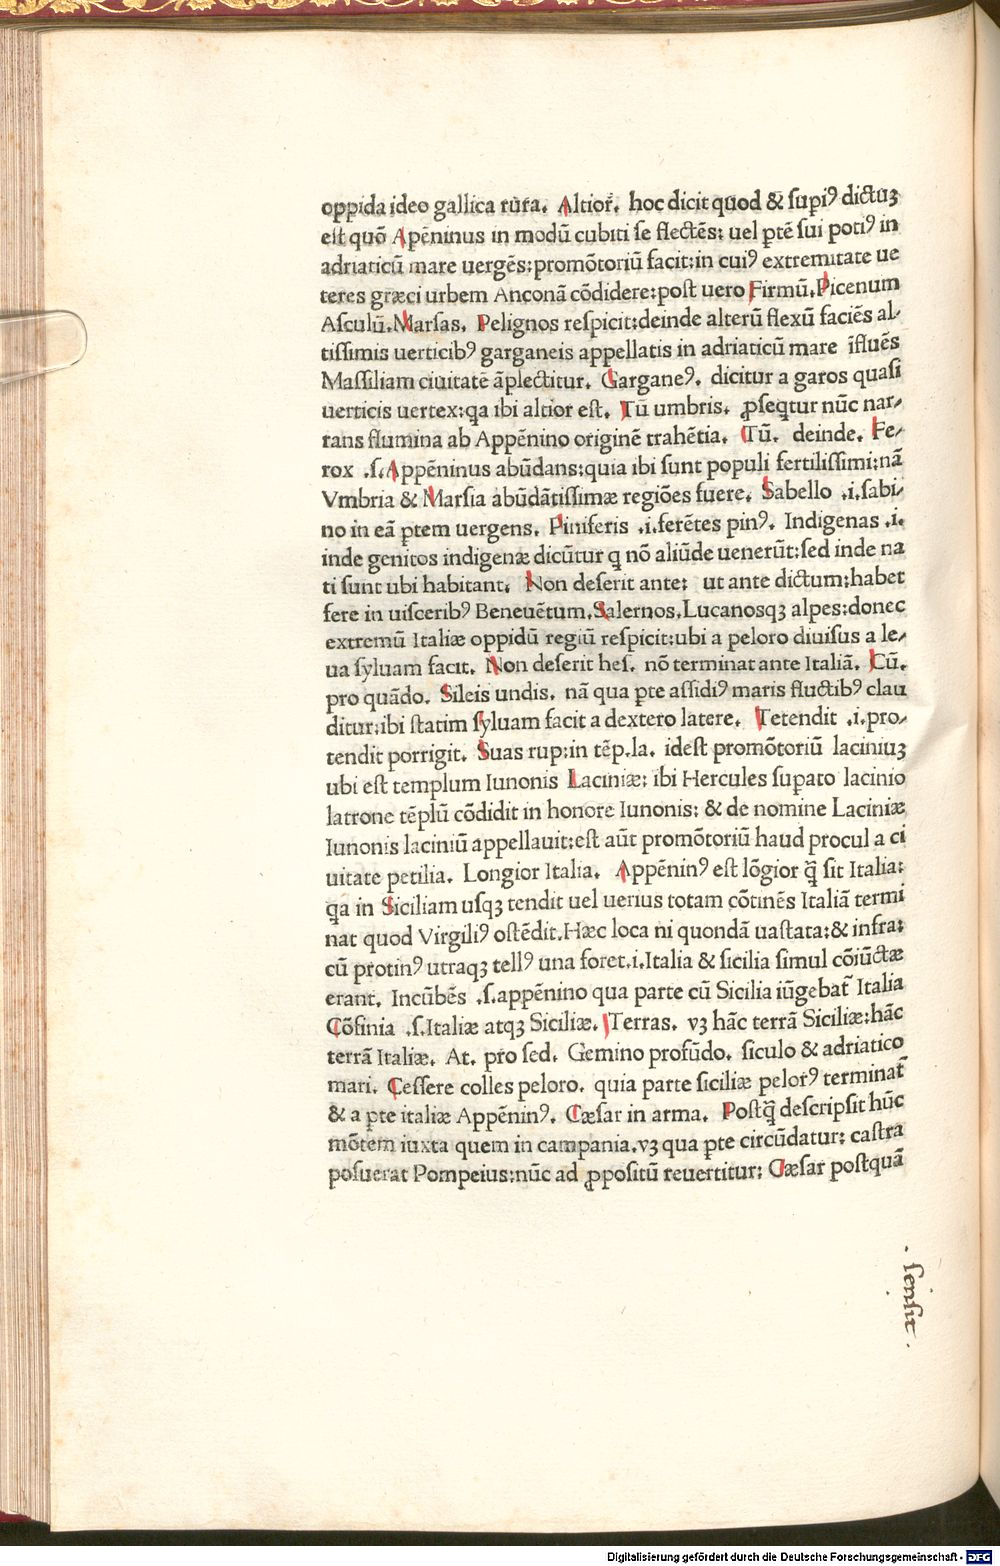 oppida ideo gallica rura. Altior̃. hoc dicit quod & ſupiꝰ dictuꝫ
eſt quō Apēninus in modū cubiti ſe flectēs: uel ꝑtē ſui potiꝰ in
adriaticū mare uergēs: promōtoriū facit: in cuiꝰ extremitate ue
teres græci urbem Anconā cōdidere: poſt uero Firmū. Picenum
Aſculū. Marſas. Pelignos reſpicit: deinde alterū flexū faciēs al-
tiſſimis uerticibꝰ garganeis appellatis in adriaticū mare īfluēs
Maſſiliam ciuitatē āplectitur. Garganeꝰ. dicitur a garos quaſi
uerticis uertex: qa ibi altior eſt. Tū umbris. ꝓſeqtur nūc nar-
rans flumina ab Appēnino originē trahētia. Tū. deinde. Fe-
rox .ſ. Appēninus abūdans: quia ibi ſunt populi fertiliſſimi: nā
Vmbria & Marſia abūdātiſſimæ regiōes fuere. Sabello .i. ſabi-
no in eā ꝑtem uergens. Piniferis .i. ferētes pinꝰ. Indigenas .i.
inde genitos indigenæ dicūtur ꝗ nō aliūde uenerūt: ſed inde na
ti ſunt ubi habitant. Non deſerit ante: ut ante dictum: habet
fere in uiſceribꝰ Beneuētum. Salernos. Lucanoſqꝫ alpes: donec
extremū Italiæ oppidū regiū reſpicit: ubi a peloro diuiſus a le-
ua ſyluam facit. Non deſerit heſ. nō terminat ante Italiā. Cū.
pro quādo. Sileis undis. nā qua ꝑte aſſidiꝰ maris fluctibꝰ clau
ditur: ibi ſtatim ſyluam facit a dextero latere. Tetendit .i. pro-
tendit porrigit. Suas rup: in tēp. la. ideſt promōtoriū laciniuꝫ
ubi eſt templum Iunonis Laciniæ: ibi Hercules ſuꝑato lacinio
latrone tēplū cōdidit in honore Iunonis: & de nomine Laciniæ
Iunonis laciniū appellauit: eſt aūt promōtoriū haud procul a ci
uitate petilia. Longior Italia. Appēninꝰ eſt lōgior q̄ ſit Italia:
qa in Siciliam uſqꝫ tendit uel uerius totam cōtinēs Italiā termi
nat quod Virgiliꝰ oſtēdit. Hæc loca ni quondā uaſtata: & infra:
cū protinꝰ utraqꝫ tellꝰ una foret. i. Italia & ſicilia ſimul cōiūctæ
erant. Incūbēs .ſ. appēnino qua parte cū Sicilia iūgebat̃ Italia
Cōfinia .ſ. Italiæ atqꝫ Siciliæ. Terras. vꝫ hāc terrā Siciliæ: hāc
terrā Italiæ. At. pro ſed. Gemino profūdo. ſiculo & adriatico
mari. Ceſſere colles peloro. quia parte ſiciliæ pelorꝰ terminat̃
& a ꝑte italiæ Appēninꝰ. Cæſar in arma. Poſtq̄ deſcripſit hūc
mōtem iuxta quem in campania. vꝫ qua ꝑte circūdatur: caſtra
poſuerat Pompeius: nūc ad ꝓpoſitū reuertitur: Cæſar poſtquā
. ſenſit .
Digitalisierung gefördert durch die Deutsche Forschungsgemeinschaft - DFG